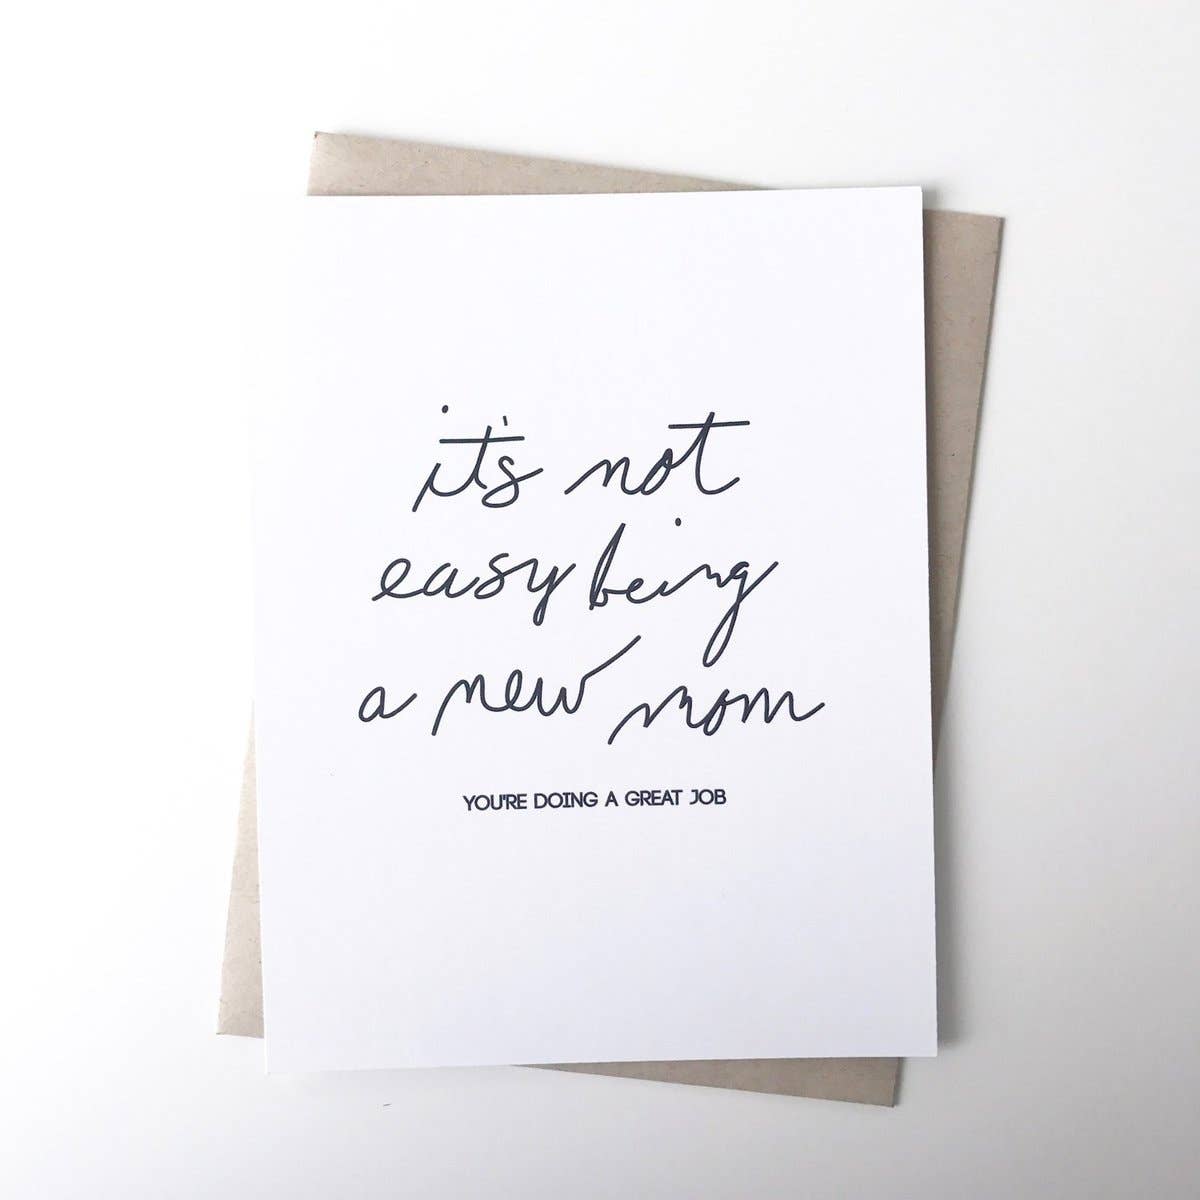 it's not
easy being
a new mom
YOU'RE DOING A GREAT JOB